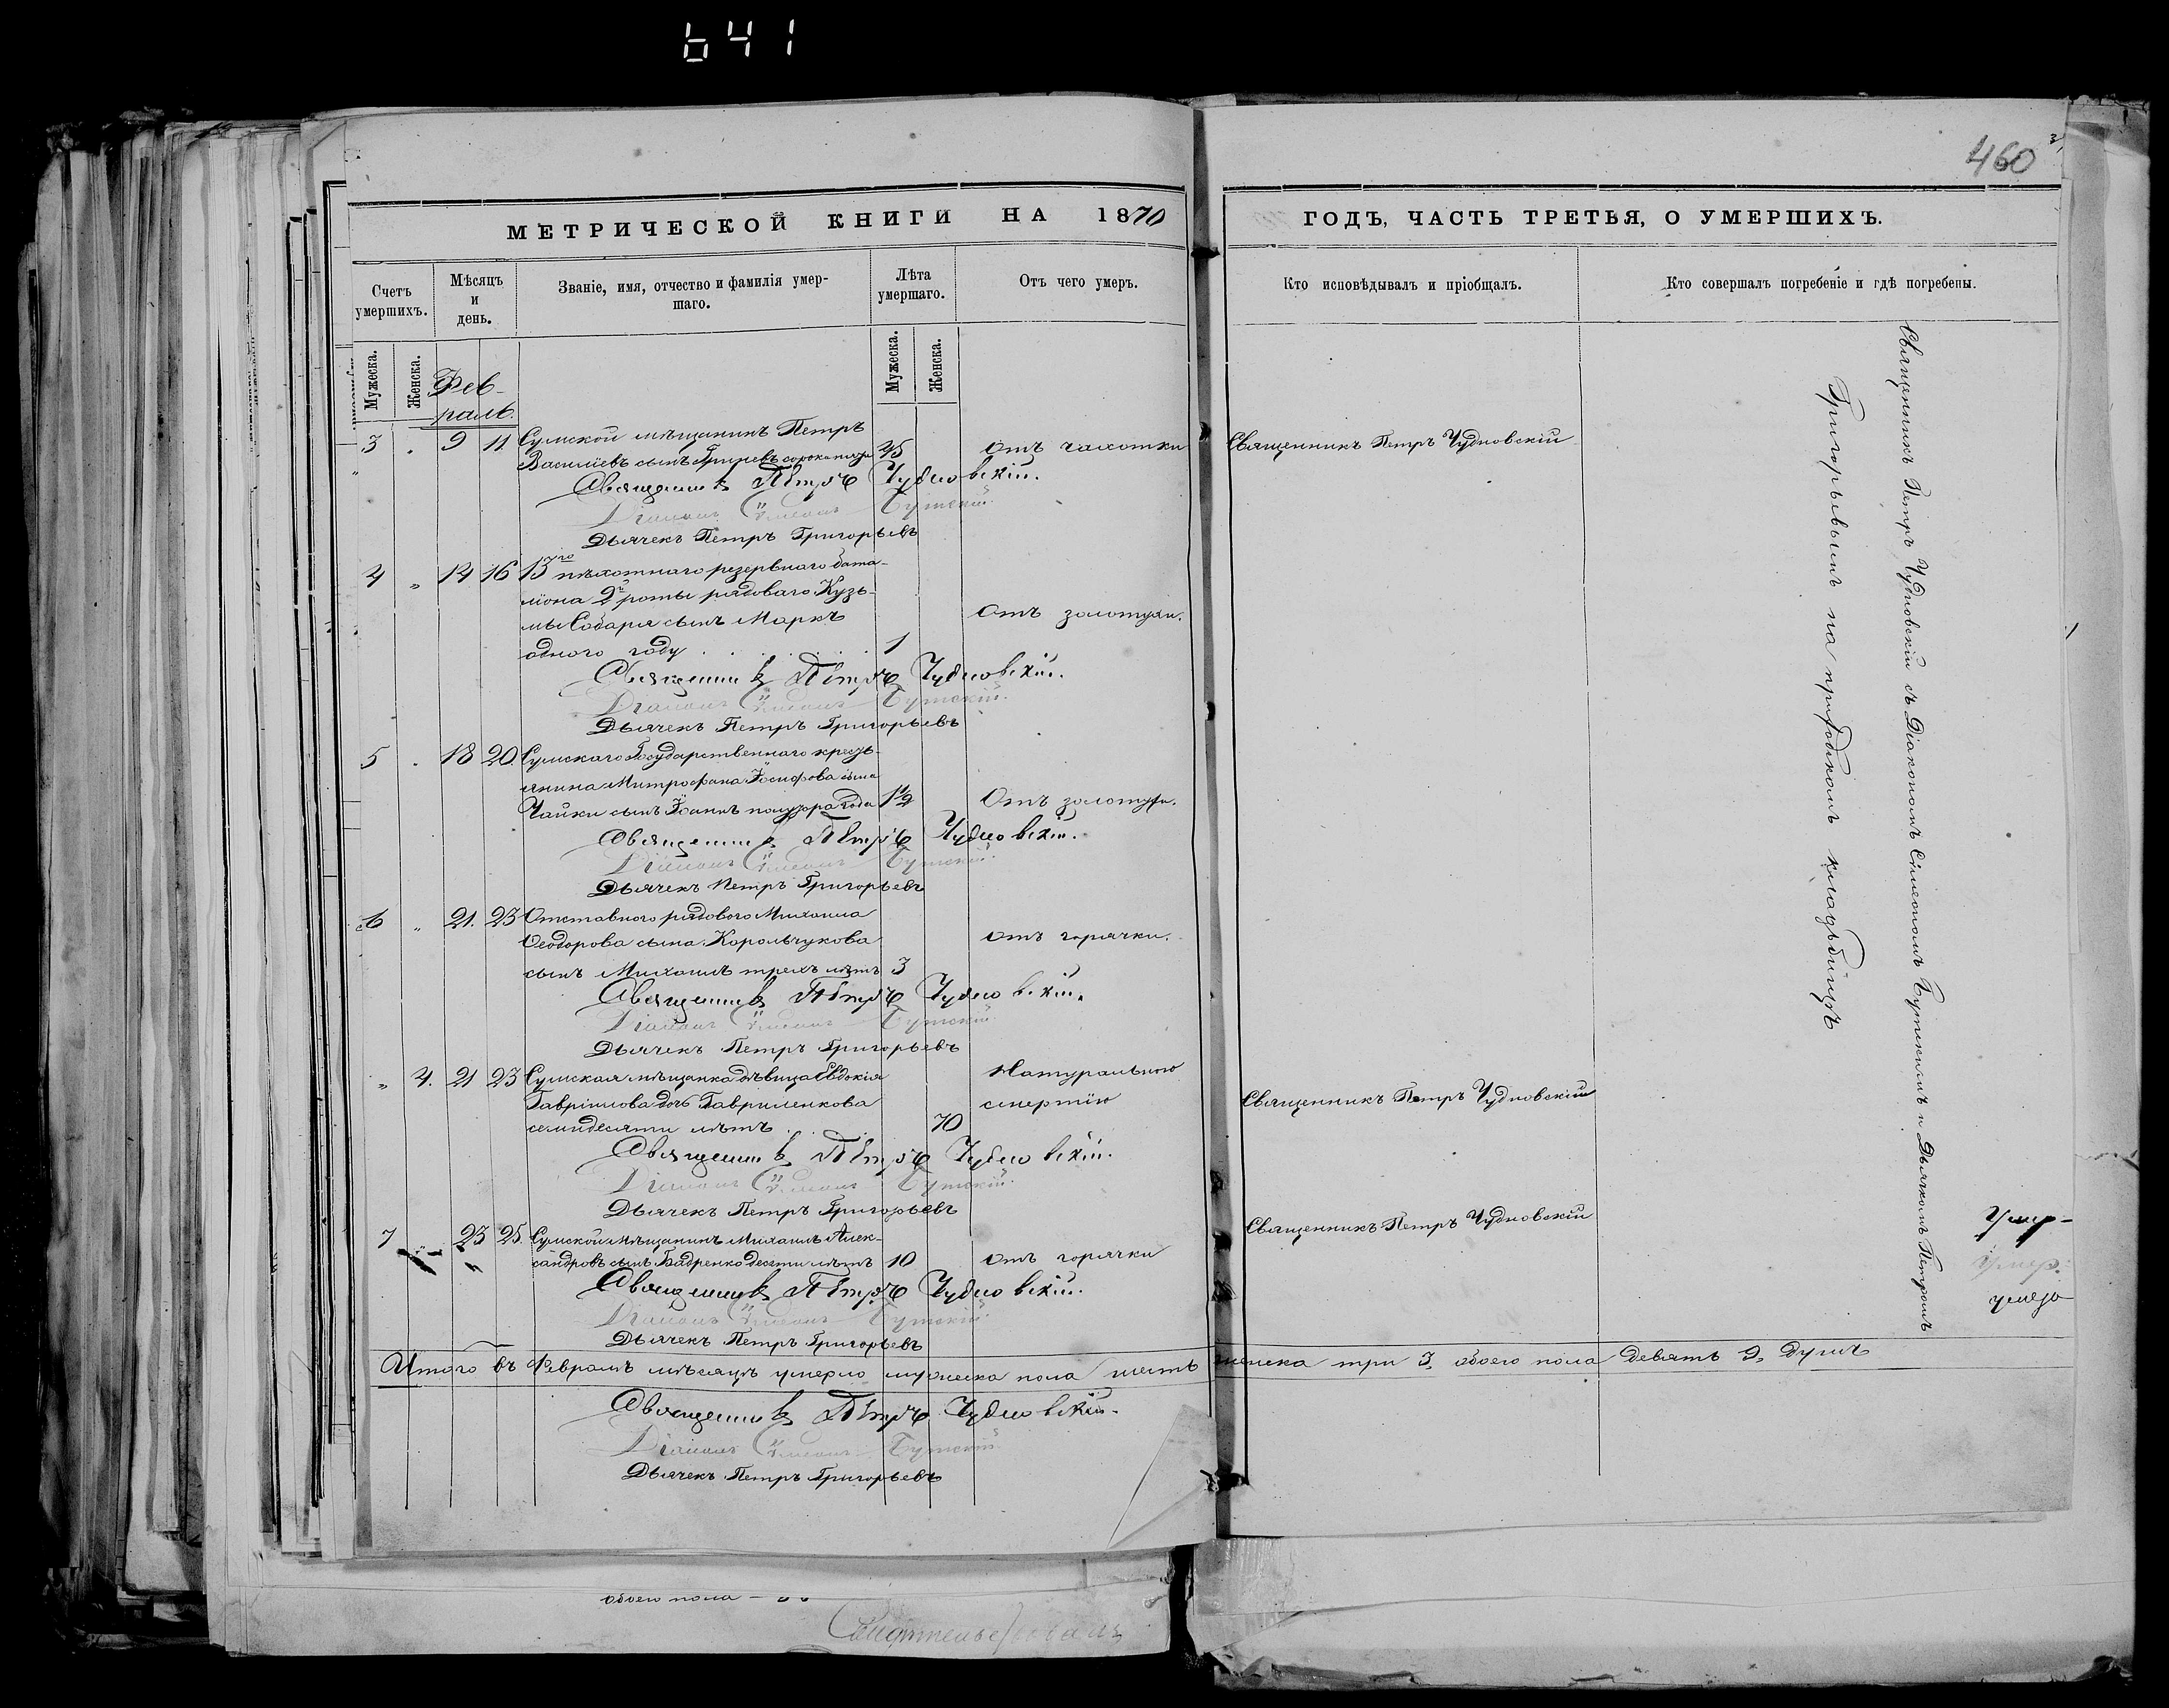 641
460
МЕТРИЧЕСКОЙ КНИГИ НА 1870
ГОДЪ, ЧАСТЬ ТРЕТЬЯ, О УМЕРШИХЪ.
Счетъ умершихъ.
Мѣсяцъ и день.
Званіе, имя, отчество и фамилія умер-
шаго.
Лѣта умершаго.
Отъ чего умеръ.
Кто исповѣдывалъ и пріобщалъ.
Кто совершалъ погребеніе и гдѣ погребены.
Мужеска.
Женска.
Мужеска.
Женска.
Фев-
раль.
3 " 9 11 Сумской мѣщанинъ Петръ
Василіевъ сынъ 45 Отъ чахотки Священникъ Петръ Чудновскій
Священникъ Петръ Чудновскій.
Діаконъ Сѵмеонъ Бутскій.
Дьячекъ Петръ Григорьевъ
4 " 14 16 13го пѣхотнаго резервнаго бата-
ліона 2й роты рядоваго Кузь-
мы сынъ Маркъ Отъ золотухи.
одного году 1
Священникъ Петръ Чудновскій.
Діаконъ Сѵмеонъ Бутскій.
Дьячекъ Петръ Григорьевъ
5 " 18 20 Сумскаго Государственнаго кресть-
янина Митрофана Іосифова сына
Чайки сынъ Іоаннъ полтора года 1½ Отъ золотухи.
Священникъ Петръ Чудновскій.
Діаконъ Сѵмеонъ Бутскій.
Дьячекъ Петръ Григорьевъ
6 " 21. 23 Отставного рядового Михаила
Ѳеодорова сына Корольчукова отъ горячки.
сынъ Михаилъ трехъ лѣтъ 3
Священникъ Петръ Чудновскій.
Діаконъ Сѵмеонъ Бутскій.
Дьячекъ Петръ Григорьевъ
" 4. 21 23 Сумская мѣщанка дѣвица Евдокія Натуральною
Гавріилова дочь Гавриленкова смертію Священникъ Петръ Чудновскій
семидесяти лѣтъ 70
Священникъ Петръ Чудновскій.
Діаконъ Сѵмеонъ Бутскій.
Дьячекъ Петръ Григорьевъ
7 " 23 25. Сумской мѣщанинъ Михаилъ Алек- Священникъ Петръ Чудновскій
сандровъ сынъ Бадренко десяти лѣтъ 10 отъ горячки
Священникъ Петръ Чудновскій.
Діаконъ Сѵмеонъ Бутскій.
Дьячекъ Петръ Григорьевъ
Священникъ Петръ Чудновскій съ Діакономъ Сѵмеономъ Бутскимъ и Дьячкомъ Петромъ
Григорьевымъ на приходскомъ кладбищѣ
Умер-
Умер.
Итого въ Февралѣ мѣсяцѣ умерло мужеска пола шесть женска три 3, обоего пола девять 9, душъ
Священникъ Петръ Чудновскій.
Діаконъ Сѵмеонъ Бутскій.
Дьячекъ Петръ Григорьевъ
обоего пола